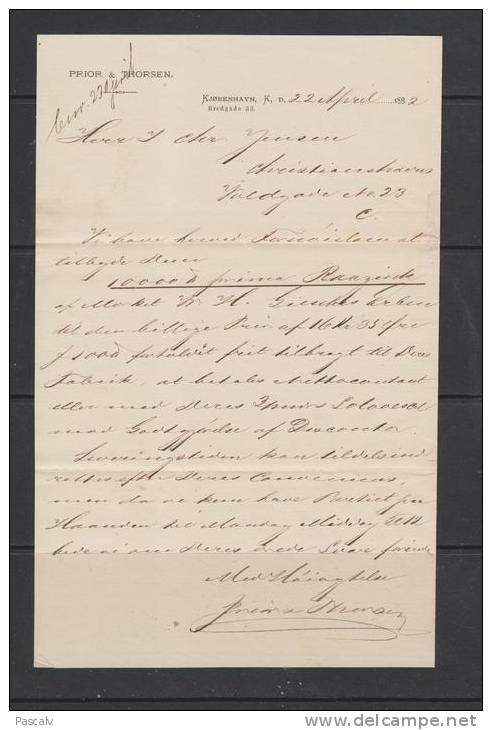 PRIOR & THORSEN.
KJØBENHAVN, K, D. 22 April 1882
Bredgade 33.
Herr J. Chr Jensen
Christianshavns
Voldgade No. 23
C.
Vi have herved Fornøielsen at
tilbyde Dem
10000 prima Raazink
af Mærket W. H. Giesches Erben
til den billige Priis af 16 Kr 35 Øre
frit tilbragt til Deres
Fabrik, at betales Nettocontant
eller med Deres
med Godtgjørelse af Disconto.
Leveringstiden kan
rettes efter Deres Convenience,
men da vi kun have Partiet paa
Haanden til Mandag Middag Kl 12
bede vi om Deres ærede Svar forinden
Med Høiagtelse
Prior & Thorsen
Pascalv
delcampe.net